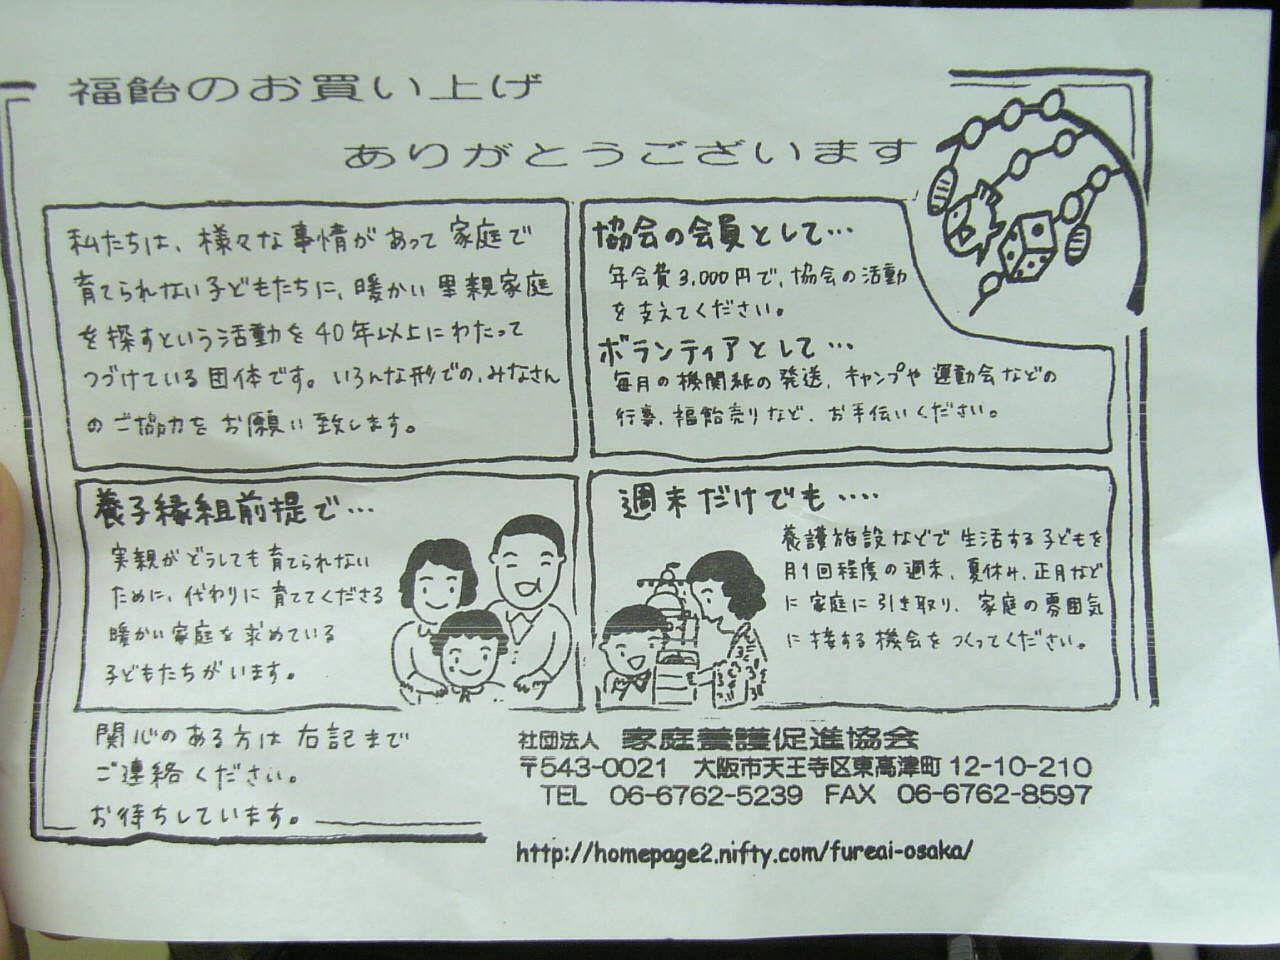 福飴のお買い上げ
ありがとうございます
私たちは、様々な事情があって家庭で
育てられない子どもたちに、暖かい里親家庭
を探すという活動を40年以上にわたって
つづけている団体です。いろんな形での、みなさん
のご協力をお願い致します。
協会の会員として…
年会費3,000円で、協会の活動
を支えてください。
ボランティアとして…
毎月の機関紙の発送、キャンプや運動会などの
行事、福飴売りなど、お手伝いください。
養子縁組前提で…
実親がどうしても育てられない
ために、代わりに育ててくださる
暖かい家庭を求めている
子どもたちがいます。
週末だけでも‥‥
養護施設などで生活する子どもを
月1回程度の週末、夏休み、正月など
に家庭に引き取り、家庭の雰囲気
に接する機会をつくってください。
関心のある方は右記まで
ご連絡ください。
お待ちしています。
社団法人 家庭養護促進協会
〒543-0021 大阪市天王寺区東高津町12-10-210
TEL 06-6762-5239 FAX 06-6762-8597
http://homepage2.nifty.com/fureai-osaka/